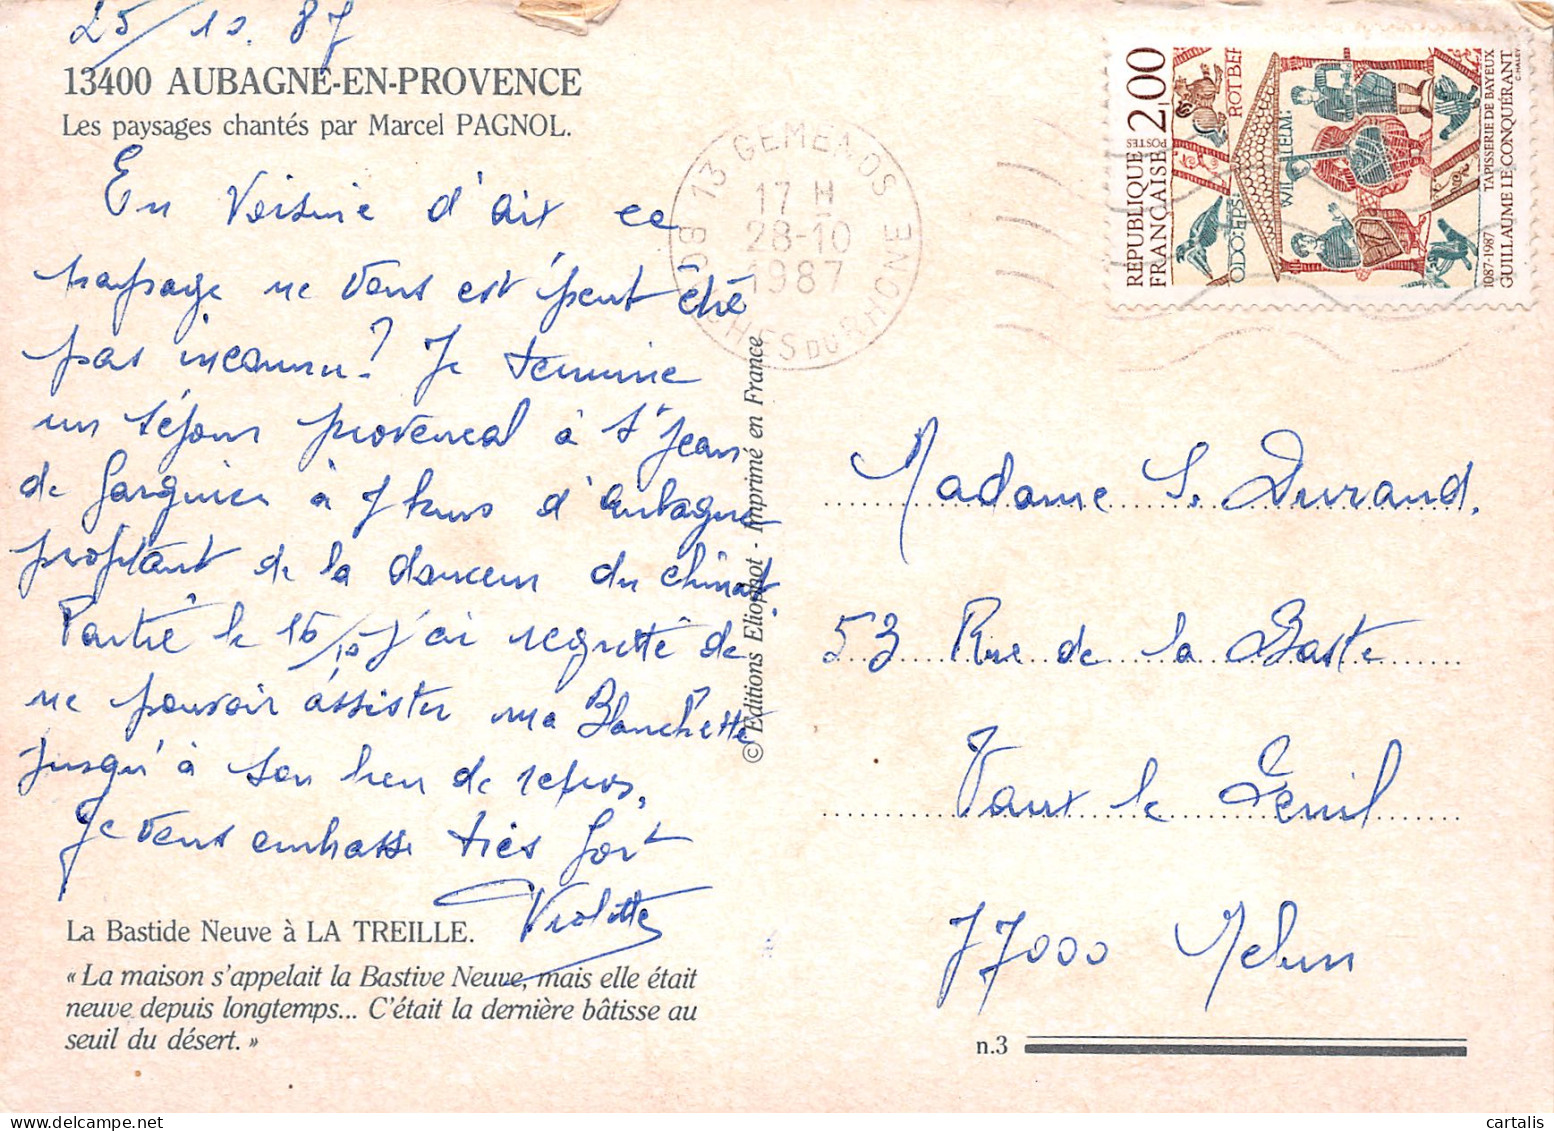 25/10.87
13400 AUBAGNE-EN-PROVENCE
Les paysages chantés par Marcel PAGNOL.
En Voisine d'aix ce
paysage ne vous est peut être
pas inconnu? Je termine
un séjour provencal à St Jean
de Garguier à 7 kms d'Aubagne
profitant de la douceur du climat.
Partie le 16/10 j'ai regretté de
ne pouvoir assister ma Blanchette
jusqu'à son lieu de repos.
Je vous embrasse très fort
Violette
La Bastide Neuve à LA TREILLE.
« La maison s'appelait la Bastive Neuve, mais elle était
neuve depuis longtemps... C'était la dernière bâtisse au
seuil du désert. »
© Editions Eliophot - Imprimé en France
13 GEMENOS
17 H
28-10
1987
BOUCHES DU RHONE
REPUBLIQUE
FRANÇAISE
POSTES 2,00
ODO:EPS
WILLELM:
ROTBER
1087-1987 TAPISSERIE DE BAYEUX
GUILLAUME LE CONQUÉRANT
Madame S. Durand.
53 Rue de la Baste
Vaux le Penil
77000 Melun
n.3
cartalis
www.delcampe.net